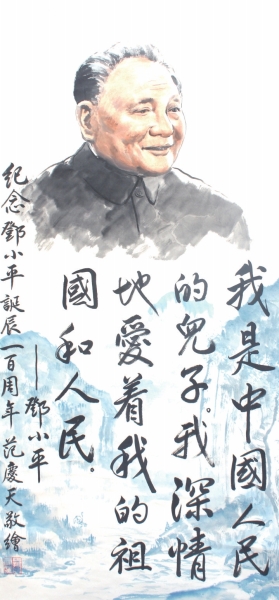 我是中國人民
的兒子。我深情
地愛着我的祖
國和人民。
——鄧小平
紀念鄧小平誕辰一百周年 范慶天敬繪